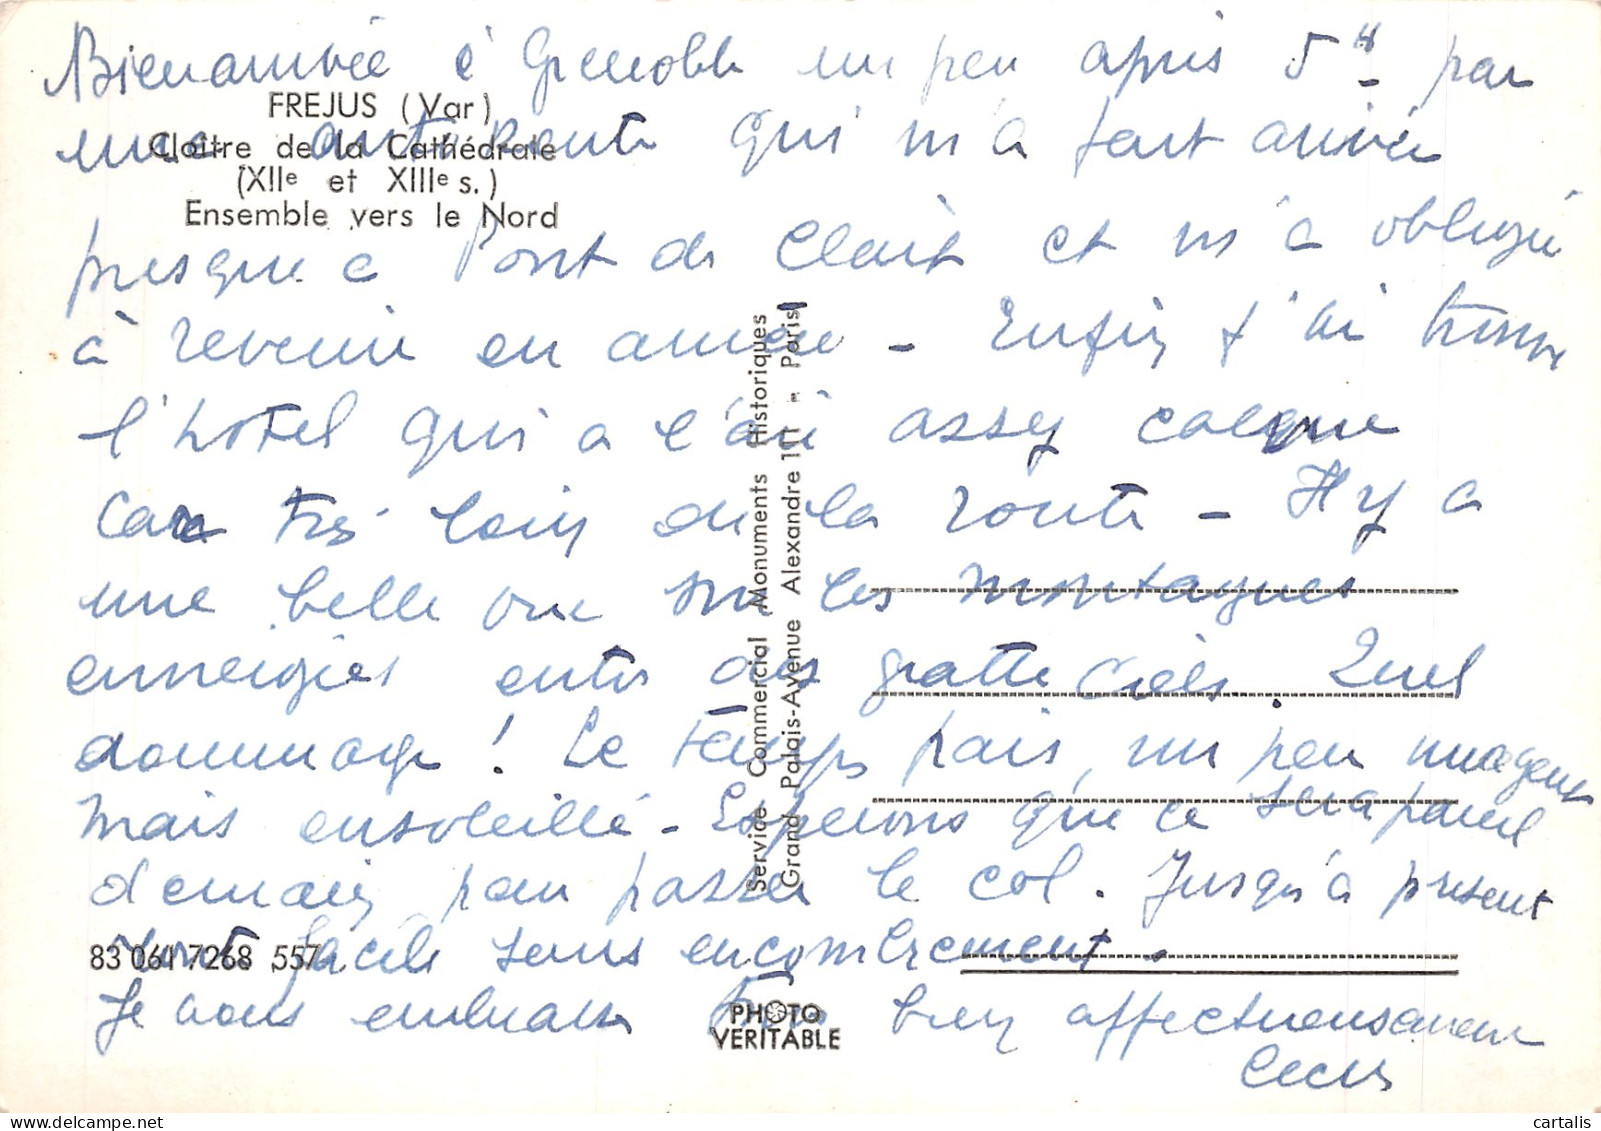 Bien arrivée à Grenoble un peu après 5H par
FREJUS (Var)
une autoroute qui m'a fait arriver
Cloître de la Cathédrale
(XIIe et XIIIe s.)
Ensemble vers le Nord
presque à Pont de Claix et m'a obligée
à revenir en arrière - Enfin j'ai trouvé
l'hotel qui a l'air assez calme
car très loin de la route - Il y a
une belle vue sur les montagnes
enneigées entre des gratte ciels. Quel
dommage ! Le temps frais, un peu nuageux
mais ensoleillé - Espérons que ce sera pareil
demain pour passer le col. Jusqu'à present
83 061 7268 557
route facile sans encombrement -
Je vous embrasse très bien affectueusement
Service Commercial Monuments Historiques
Grand Palais-Avenue Alexandre III - Paris
PHOTO
VERITABLE
cartalis - www.delcampe.net